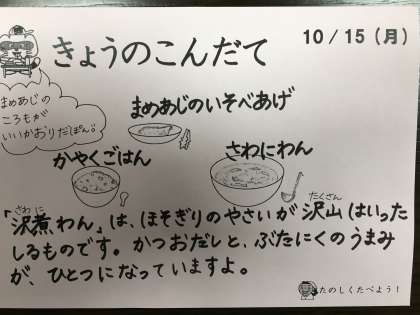 きょうのこんだて
10/15(月)
まめあじの
ころもが
いいかおりだぽん。
まめあじのいそべあげ
かやくごはん
さわにわん
さわに
たくさん
「沢煮わん」は、ほそぎりのやさいが沢山はいった
しるものです。かつおだしと、ぶたにくのうまみ
が、ひとつになっていますよ。
たのしくたべよう!